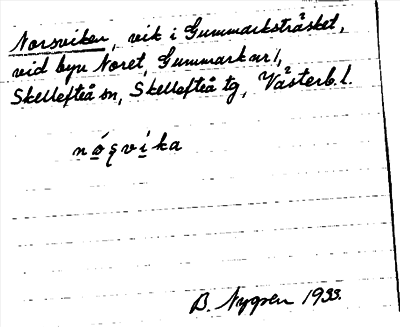 Norsviken, vik i Gummarksträsket,
vid byn Noret, Gummark nr 1,
Skellefteå sn, Skellefteå tg, Västerb. l.
nó̲ʂvi̲ka
B. Nygren 1933.